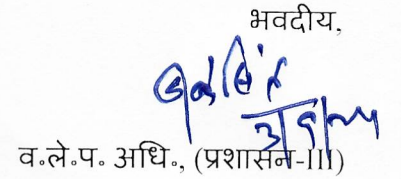 भवदीय,
व.ले.प. अधि., (प्रशासन-III)